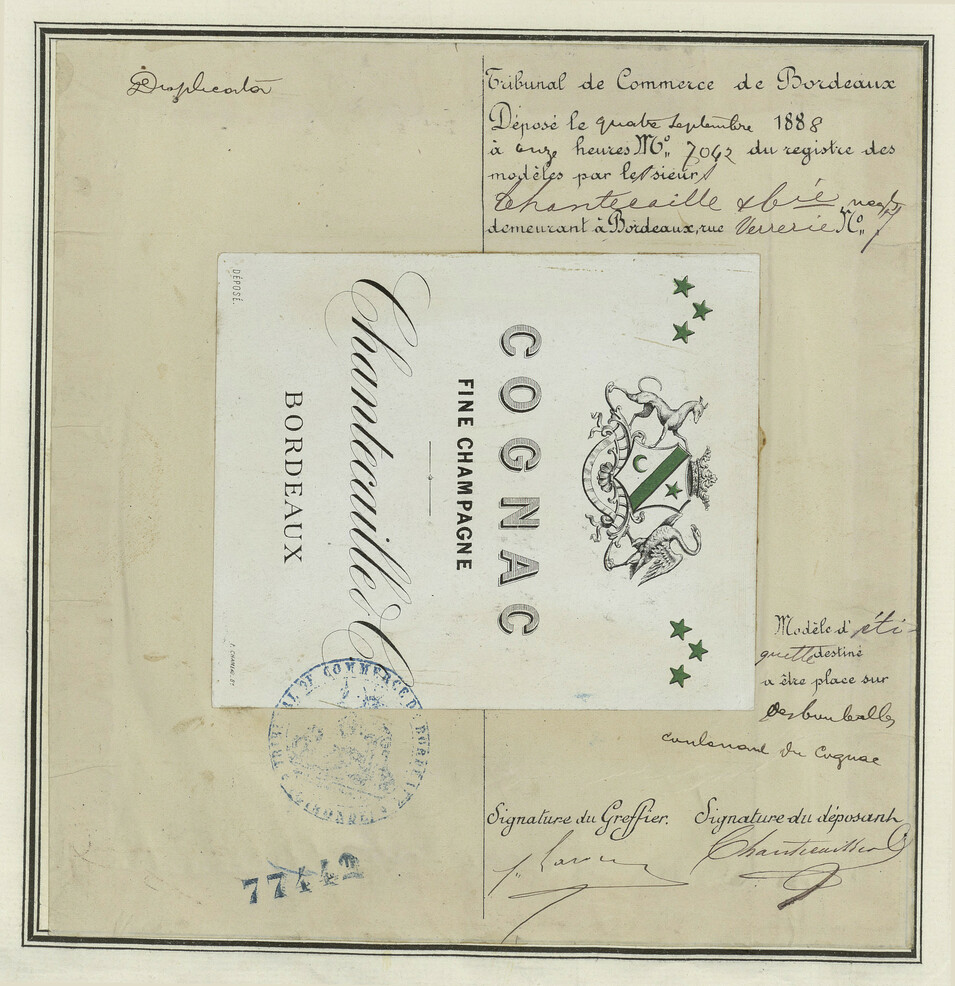 Duplicata
Tribunal de Commerce de Bordeaux
Déposé le quatre Septembre 1888
à onze heures M. N° 7042 du registre des
modèles par les sieurs
Chantecaille & Cie negts
demeurant à Bordeaux, rue Verrerie N° 7
DÉPOSÉ.
COGNAC
FINE CHAMPAGNE
Chantecaille & C
BORDEAUX
Modèle d'éti-
quette destiné
a être place sur
des bouteilles
contenant du Cognac
TRIBUNAL DE COMMERCE DE BORDEAUX
77442
Signature du Greffier. Signature du déposant
Chantecaille & C